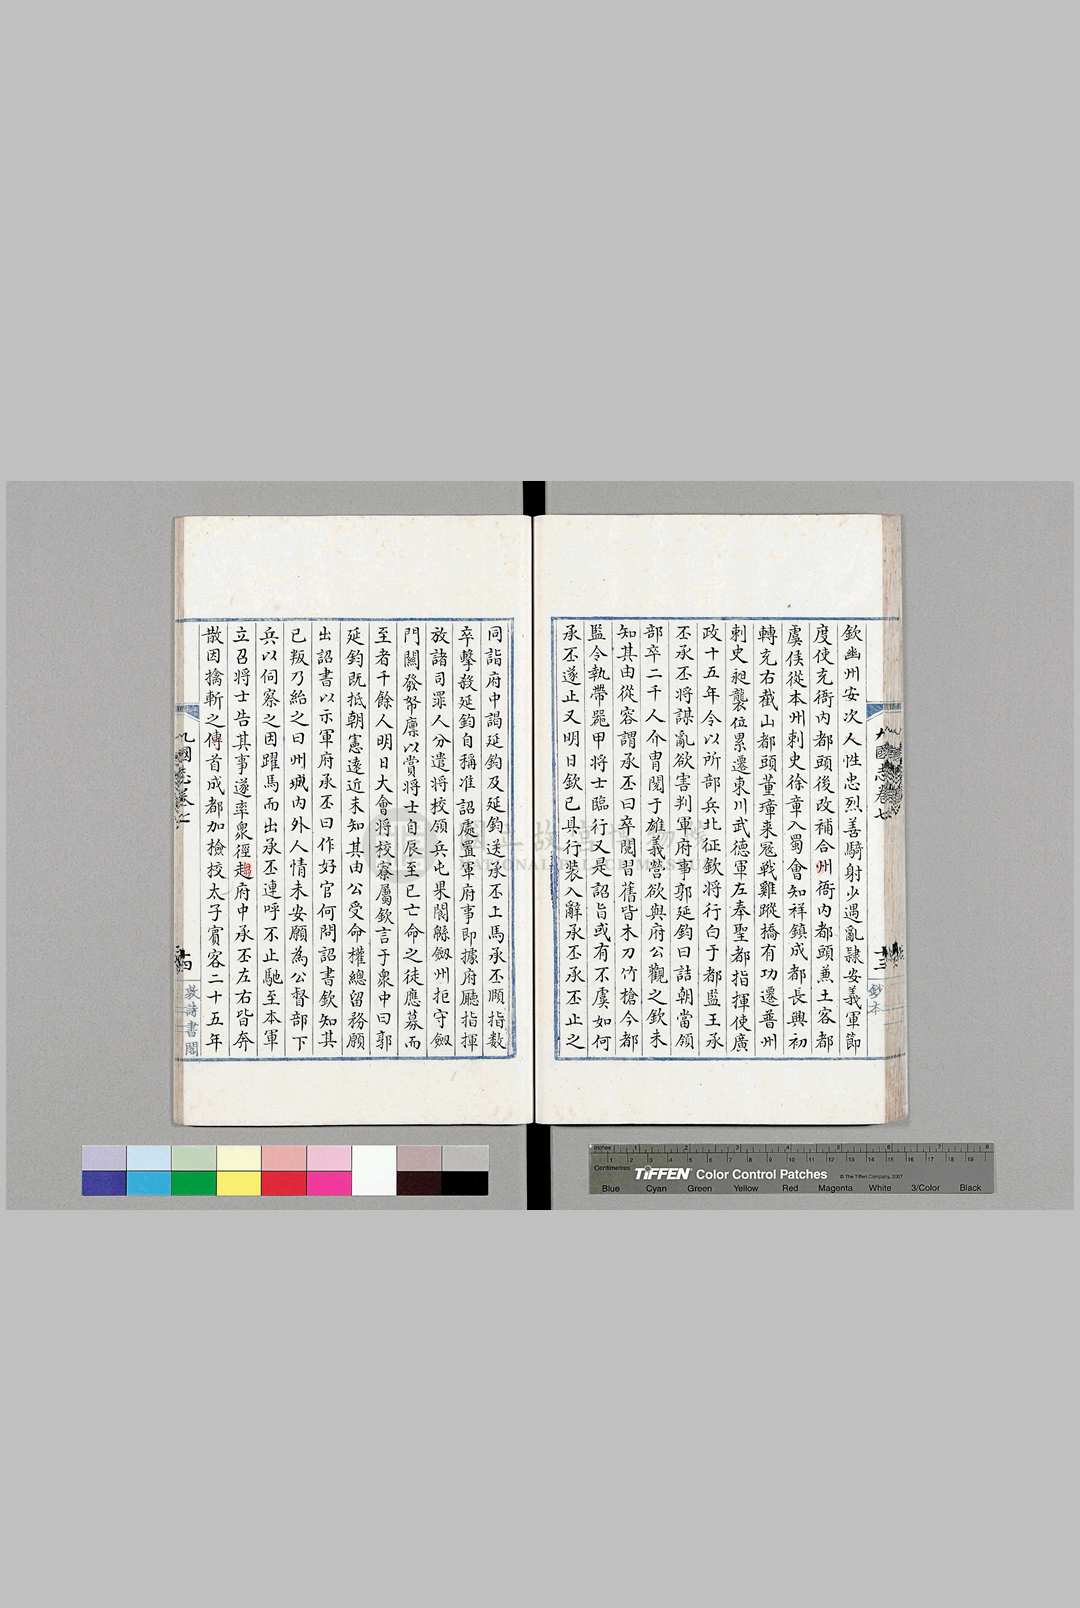 欽幽州安次人性忠烈善騎射少遇亂隷安義軍節
度使充衙内都頭後改補合州衙内都頭兼土客都
虞侯從本州刺史徐章入蜀會知祥鎮成都長興初
轉充右截山都頭董璋来冦戦雞蹤橋有功遷普州
刺史昶襲位累遷東川武德軍左奉聖都指揮使廣
政十五年令以所部兵北征欽將行白于都监王承
丕承丕將謀亂欲害判軍府事郭延鈞曰詰朝當領
部卒二千人介冑閱于雄義營欲與府公觀之欽未
知其由從容謂承丕曰卒閱習舊皆木刀竹槍今都
监令執帶器甲将士臨行又是詔旨或有不虞如何
承丕遂止又明日欽已具行裝入辭承丕承丕止之
同詣府中謁延鈞及延鈞送承丕上馬承丕顧指数
卒擊殺延鈞自稱准詔處置軍府事即據府廳指揮
放諸司罪人分遣将校領兵屯果閬緜劔州拒守劔
門關發帑廪以賞将士自辰至巳亡命之徒應募而
至者千餘人明日大會将校寮屬欽言于衆中曰郭
延鈞既抵朝憲遠近未知其由公受命權總留務願
出詔書以示軍府承丕曰作好官何問詔書欽知其
已叛乃紿之曰州城内外人情未安願為公督部下
兵以伺察之因躍馬而出承丕連呼不止馳至本軍
立召将士告其事遂率衆徑趨府中承丕左右皆奔
散因擒斬之傳首成都加檢挍太子賓客二十五年
九國志卷七
十三
鈔本
九國志卷七
十四
荻詩書閣
國立故宮博物院
NATIONAL PALACE MUSEUM
Inches 1 2 3 4 5 6 7 8
Centimetres 1 2 3 4 5 6 7 8 9 10 11 12 13 14 15 16 17 18 19
TIFFEN Color Control Patches © The Tiffen Company, 2007
Blue Cyan Green Yellow Red Magenta White 3/Color Black